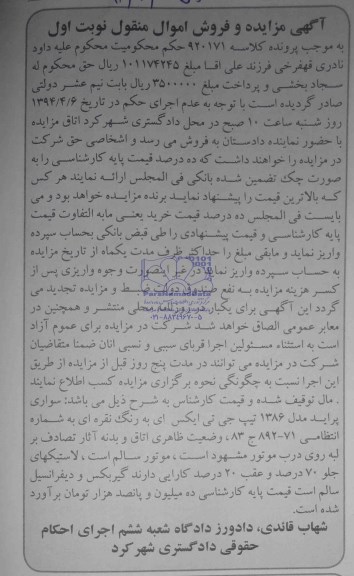 آگهی مزایده و فروش اموال منقول نوبت اول
به موجب پرونده کلاسه ۹۲۰۱۷۱ حکم محکومیت محکوم علیه داود
نادری قهفرخی فرزند علی اقا مبلغ ۱۰۱۱۷۴۲۴۵ ریال حق محکوم له
سجاد بخشی و پرداخت مبلغ ۳۵۰۰۰۰۰ ریال بابت نیم عشر دولتی
صادر گردیده است با توجه به عدم اجرای حکم در تاریخ ۱۳۹۴/۴/۶
روز شنبه ساعت ۱۰ صبح در محل دادگستری شهرکرد اتاق مزایده
با حضور نماینده دادستان به فروش می رسد و اشخاصی حق شرکت
در مزایده را خواهند داشت که ده درصد قیمت پایه کارشناسی را به
صورت چک تضمین شده بانکی فی المجلس ارائه نمایند هر کس
که بالاترین قیمت را پیشنهاد نماید برنده مزایده خواهد بود و می
بایست فی المجلس ده درصد قیمت خرید یعنی مابه التفاوت قیمت
پایه کارشناسی و قیمت پیشنهادی را طی قبض بانکی بحساب سپرده
واریز نماید و مابقی مبلغ را حداکثر ظرف مدت یکماه از تاریخ مزایده
به حساب سپرده واریز نماید در غیر اینصورت وجوه واریزی پس از
کسر هزینه مزایده به نفع صندوق دولت ضبط و مزایده تجدید می
گردد این آگهی برای یکبار در روزنامه محلی منتشر و همچنین در
معابر عمومی الصاق خواهد شد شرکت در مزایده برای عموم آزاد
است به استثناء مسئولین اجرا قربای سببی و نسبی انان ضمنا متقاضیان
شرکت در مزایده می توانند در مدت پنج روز قبل از مزایده از طریق
این اجرا نسبت به چگونگی نحوه برگزاری مزایده کسب اطلاع نمایند
. مال توقیف شده و قیمت کارشناس به شرح ذیل می باشد: سواری
پراید مدل ۱۳۸۶ تیپ جی تی ایکس ای به رنگ نقره ای به شماره
انتظامی ۷۱-۸۹۲ ج ۸۳، وضعیت ظاهری اتاق و بدنه آثار تصادف بر
لبه روی درب موتور مشهود است، موتور سالم است، لاستیکهای
جلو ۷۰ درصد و عقب ۲۰ درصد کارایی دارند گیربکس و دیفرانسیل
سالم است قیمت پایه کارشناسی ده میلیون و پانصد هزار تومان برآورد
شده است.
شهاب قائدی، دادورز دادگاه شعبه ششم اجرای احکام
حقوقی دادگستری شهرکرد